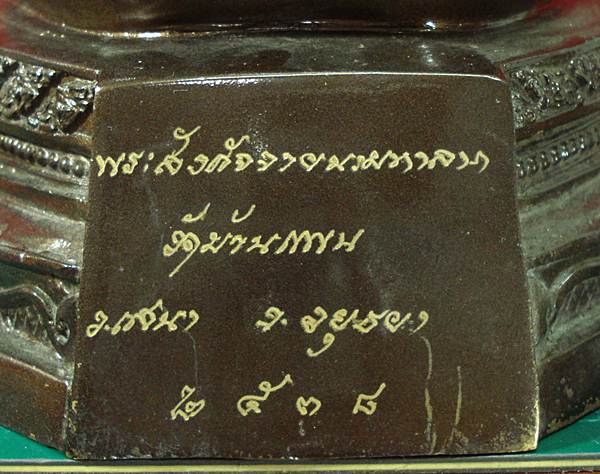 พระสังกัจจายนมหาลาภ
วัดบ้านแพน
อ.เสนา จ.อยุธยา
๒๕๓๘